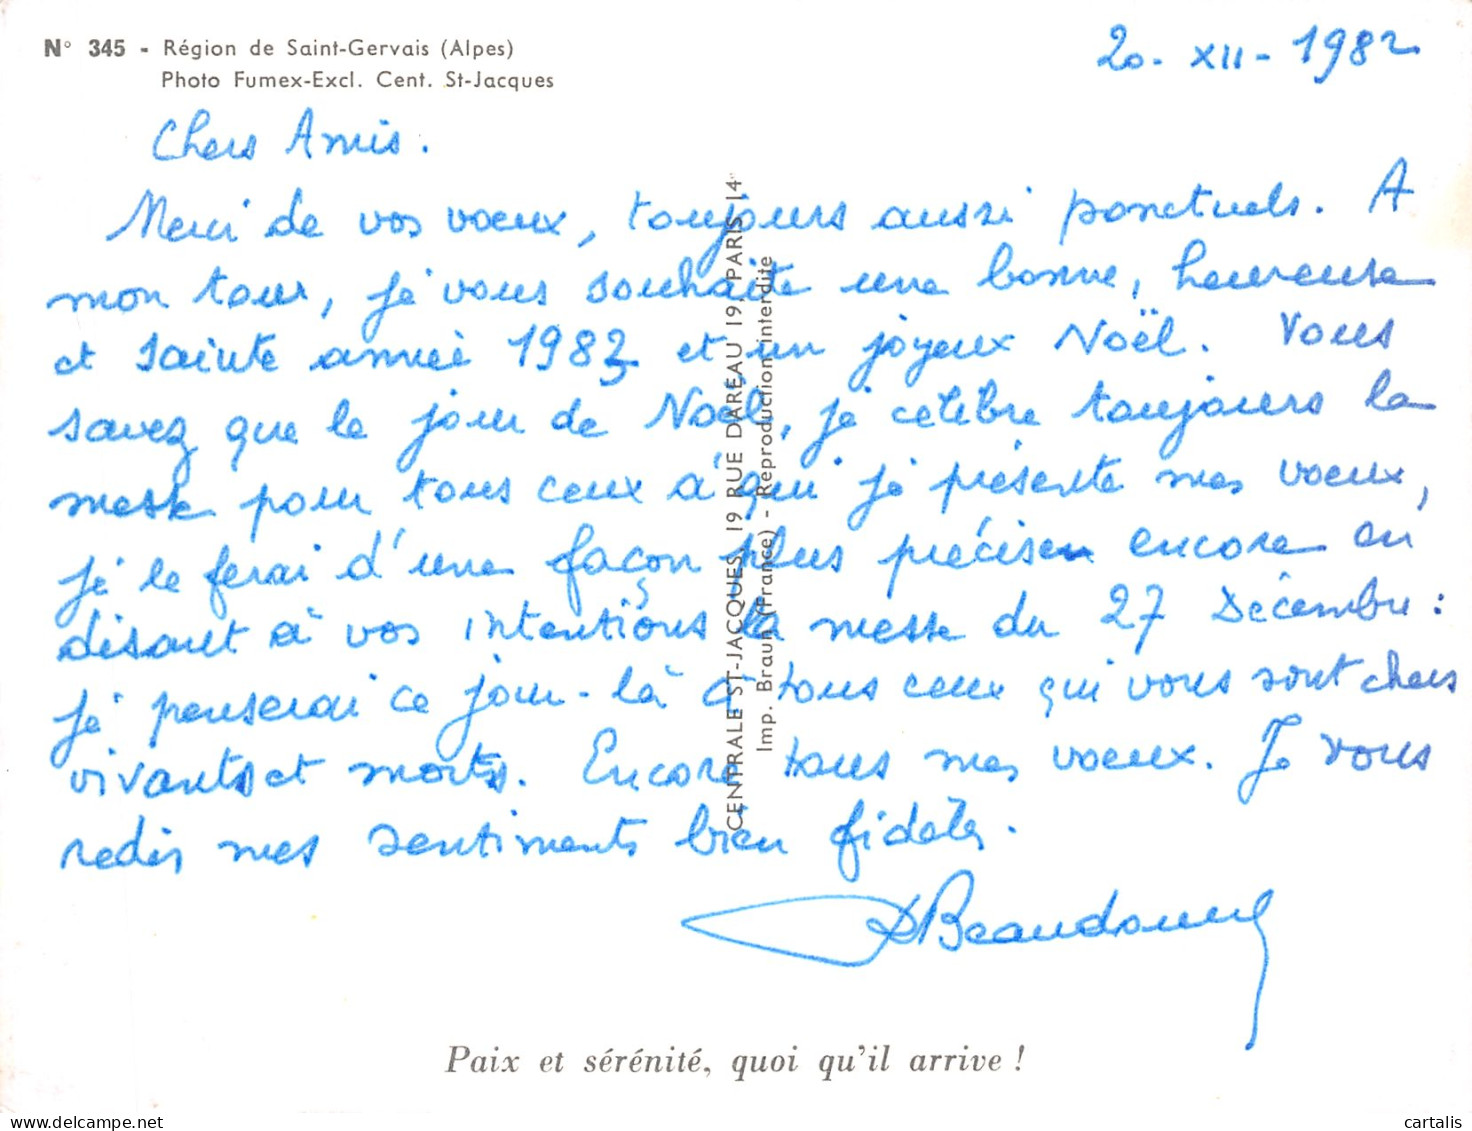 N° 345 - Région de Saint-Gervais (Alpes)
Photo Fumex-Excl. Cent. St-Jacques
20-XII-1982
Chers Amis.
Merci de vos voeux, toujours aussi ponctuels. A
mon tour, je vous souhaite une bonne, heureuse
et sainte année 1983 et un joyeux Noël. Vous
savez que le jour de Noël, je célèbre toujours la
messe pour tous ceux à qui je présente mes voeux,
je le ferai d'une façon plus précise encore en
disant à vos intentions la messe du 27 Décembre :
je penserai ce jour-là à tous ceux qui vous sont chers
vivants et morts. Encore tous mes voeux. Je vous
redis mes sentiments bien fidèles.
CENTRALE ST-JACQUES, 19 RUE DAREAU 19, PARIS 14
Imp. Braun (France) - Reproduction interdite
Paix et sérénité, quoi qu'il arrive !
cartalis